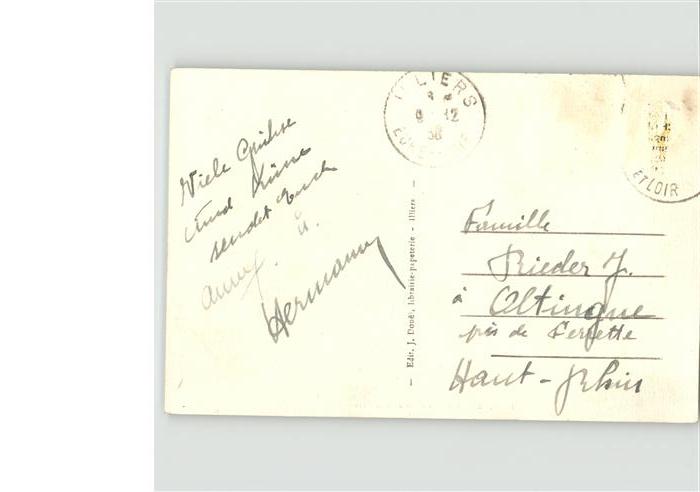 ILLIERS
9 -12
38
EURE-ET-LOIR
ET LOIR
Viele Grüsse
und Küsse
sendet Euch
u.
Hermann
Edit. J. Douël, librairie-papeterie - Illiers
Famille
Rieder J.
à Oltingue
près de Ferrette
Haut-Rhin